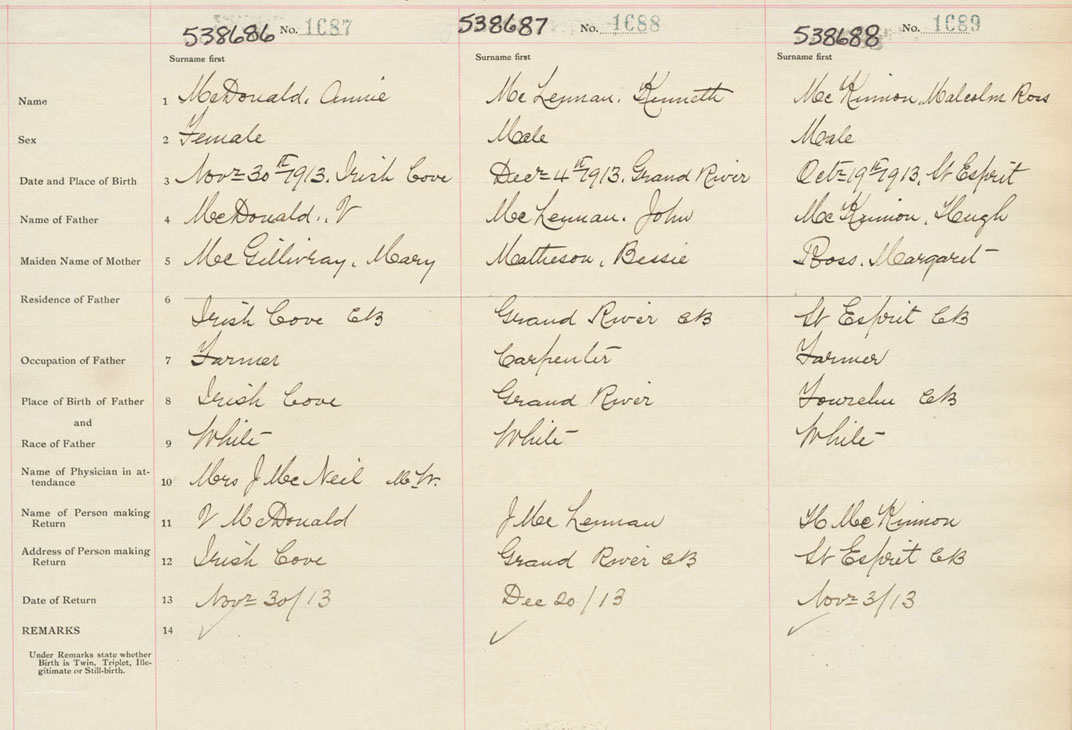 538686 No. 1687 538687 No. 1688 538688 No. 1689
Surname first Surname first Surname first
Name 1 McDonald, Annie Mc Lennan, Kenneth Mc Kinnon, Malcolm Ross
Sex 2 Female Male Male
Date and Place of Birth 3 Novr 30th 1913, Irish Cove Decr 4th 1913, Grand River Octr 19th 1913, St Esprit
Name of Father 4 McDonald, V Mc Lennan, John Mc Kinnon, Hugh
Maiden Name of Mother 5 Mc Gillivray, Mary Matheson, Bessie Ross, Margaret
Residence of Father 6
Irish Cove CB Grand River CB St Esprit CB
Occupation of Father 7 Farmer Carpenter Farmer
Place of Birth of Father 8 Irish Cove Grand River CB
and
Race of Father 9 White White White
Name of Physician in at-
tendance 10 Mrs J Mc Neil M.W.
Name of Person making
Return 11 V McDonald J Mc Lennan H Mc Kinnon
Address of Person making
Return 12 Irish Cove Grand River CB St Esprit CB
Date of Return 13 Novr 30/13 Dec 20/13 Novr 3/13
REMARKS 14 ✓ ✓ ✓
Under Remarks state whether
Birth is Twin, Triplet, Ille-
gitimate or Still-birth.